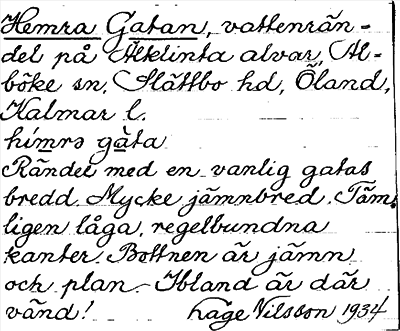 Hemra Gatan, vattenrän-
del på Alklinta alvar, Al-
böke sn, Slättbo hd, Öland,
Kalmar l.
hímrə gàta
Rändel med en vanlig gatas
bredd. Mycke jämnbred. Täm-
ligen låga, regelbundna
kanter. Bottnen är jämn
och plan. Ibland är där
vånd! Lage Nilsson 1934